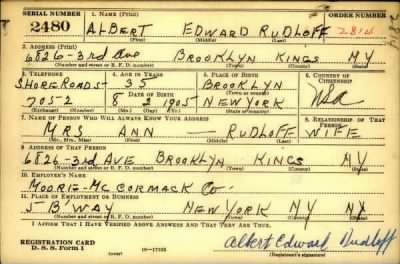 SERIAL NUMBER 1. NAME (Print) ORDER NUMBER
2480 ALBERT EDWARD RUDLOFF
(First) (Middle) (Last)
2. ADDRESS (Print)
6826-3rd AVE BROOKLYN KINGS NY
(Number and street or R. F. D. number) (Town) (County) (State)
3. TELEPHONE 4. AGE IN YEARS 5. PLACE OF BIRTH 6. COUNTRY OF CITIZENSHIP
SHORE ROADS- 35 BROOKLYN
DATE OF BIRTH (Town or county)
7052 8 2 1905 NEW YORK USA
(Exchange) (Number) (Mo.) (Day) (Yr.) (State or country)
7. NAME OF PERSON WHO WILL ALWAYS KNOW YOUR ADDRESS 8. RELATIONSHIP OF THAT PERSON
MRS ANN — RUDLOFF WIFE
(Mr., Mrs., Miss) (First) (Middle) (Last)
9. ADDRESS OF THAT PERSON
6826-3rd AVE BROOKLYN KINGS NY
(Number and street or R. F. D. number) (Town) (County) (State)
10. EMPLOYER'S NAME
MOORE-MCCORMACK CO-
11. PLACE OF EMPLOYMENT OR BUSINESS
5 B'WAY NEW YORK NY NY
(Number and street or R. F. D. number) (Town) (County) (State)
I AFFIRM THAT I HAVE VERIFIED ABOVE ANSWERS AND THAT THEY ARE TRUE.
REGISTRATION CARD
D. S. S. Form 1 (over) 16—17105 Albert Edward Rudloff
(Registrant's signature)